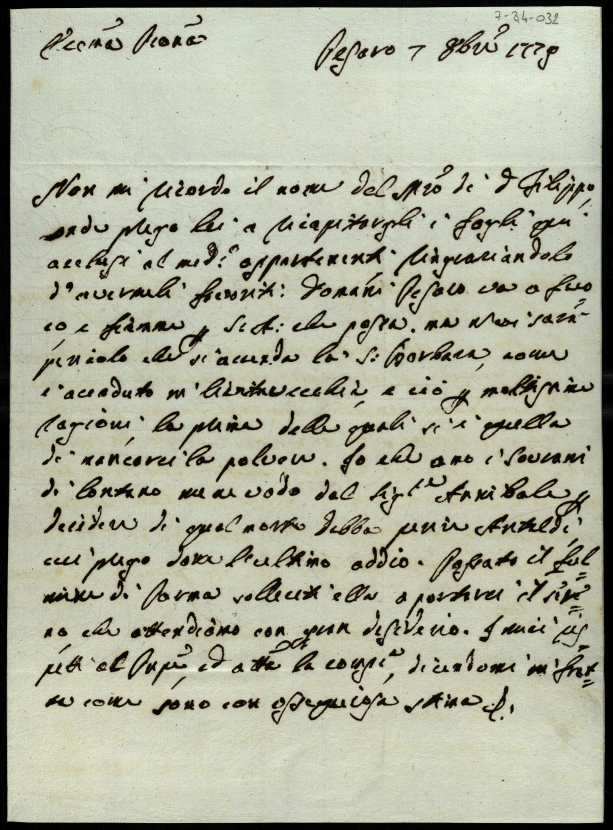 7-34-032
Pesaro 7 8bre 1779
Non mi ricordo il nome del Mro di d Filippo
onde prego lei a ricapitargli i fogli qui
acclusi al med.o appartenenti ringraziandolo
d'avermeli favoriti: Domani Pesaro va a fuo
co e fiamme p S. A: che passa, ma non sarà
pericolo che s'accenda la S: Barbara, come
è accaduto in Civitavecchia e ciò p moltissime
ragioni la prima delle quali si è quella
di mancarci la polvere. Io che amo i Sovrani
di lontano me ne vado dal Sigr Annibale p
decidere di qual morte debba perir Antaldi
cui prego dare l'ultimo addio. Passato il ful=
mine di Parma solleciti ella a portarci il sere=
no che attendiamo con gran desiderio. I miei ris=
petti al ed alla dicendomi in fret=
ta come sono con ossequiosa stima